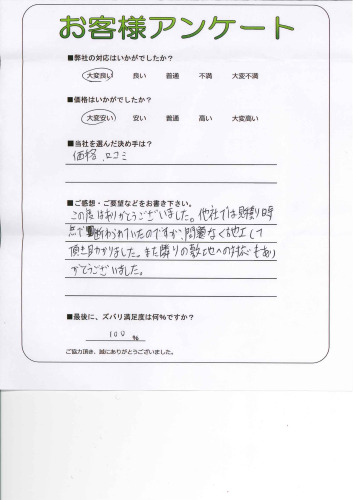 お客様アンケート
■弊社の対応はいかがでしたか?
大変良い 良い 普通 不満 大変不満
■価格はいかがでしたか?
大変安い 安い 普通 高い 大変高い
■当社を選んだ決め手は?
価格、口コミ
■ご感想・ご要望などをお書き下さい。
この度はありがとうございました。他社では見積り時
点で断わられていたのですが、問題なく施工して
頂き助かりました。また隣りの敷地への対応もあり
がとうございました。
■最後に、ズバリ満足度は何%ですか?
100 %
ご協力頂き、誠にありがとうございました。